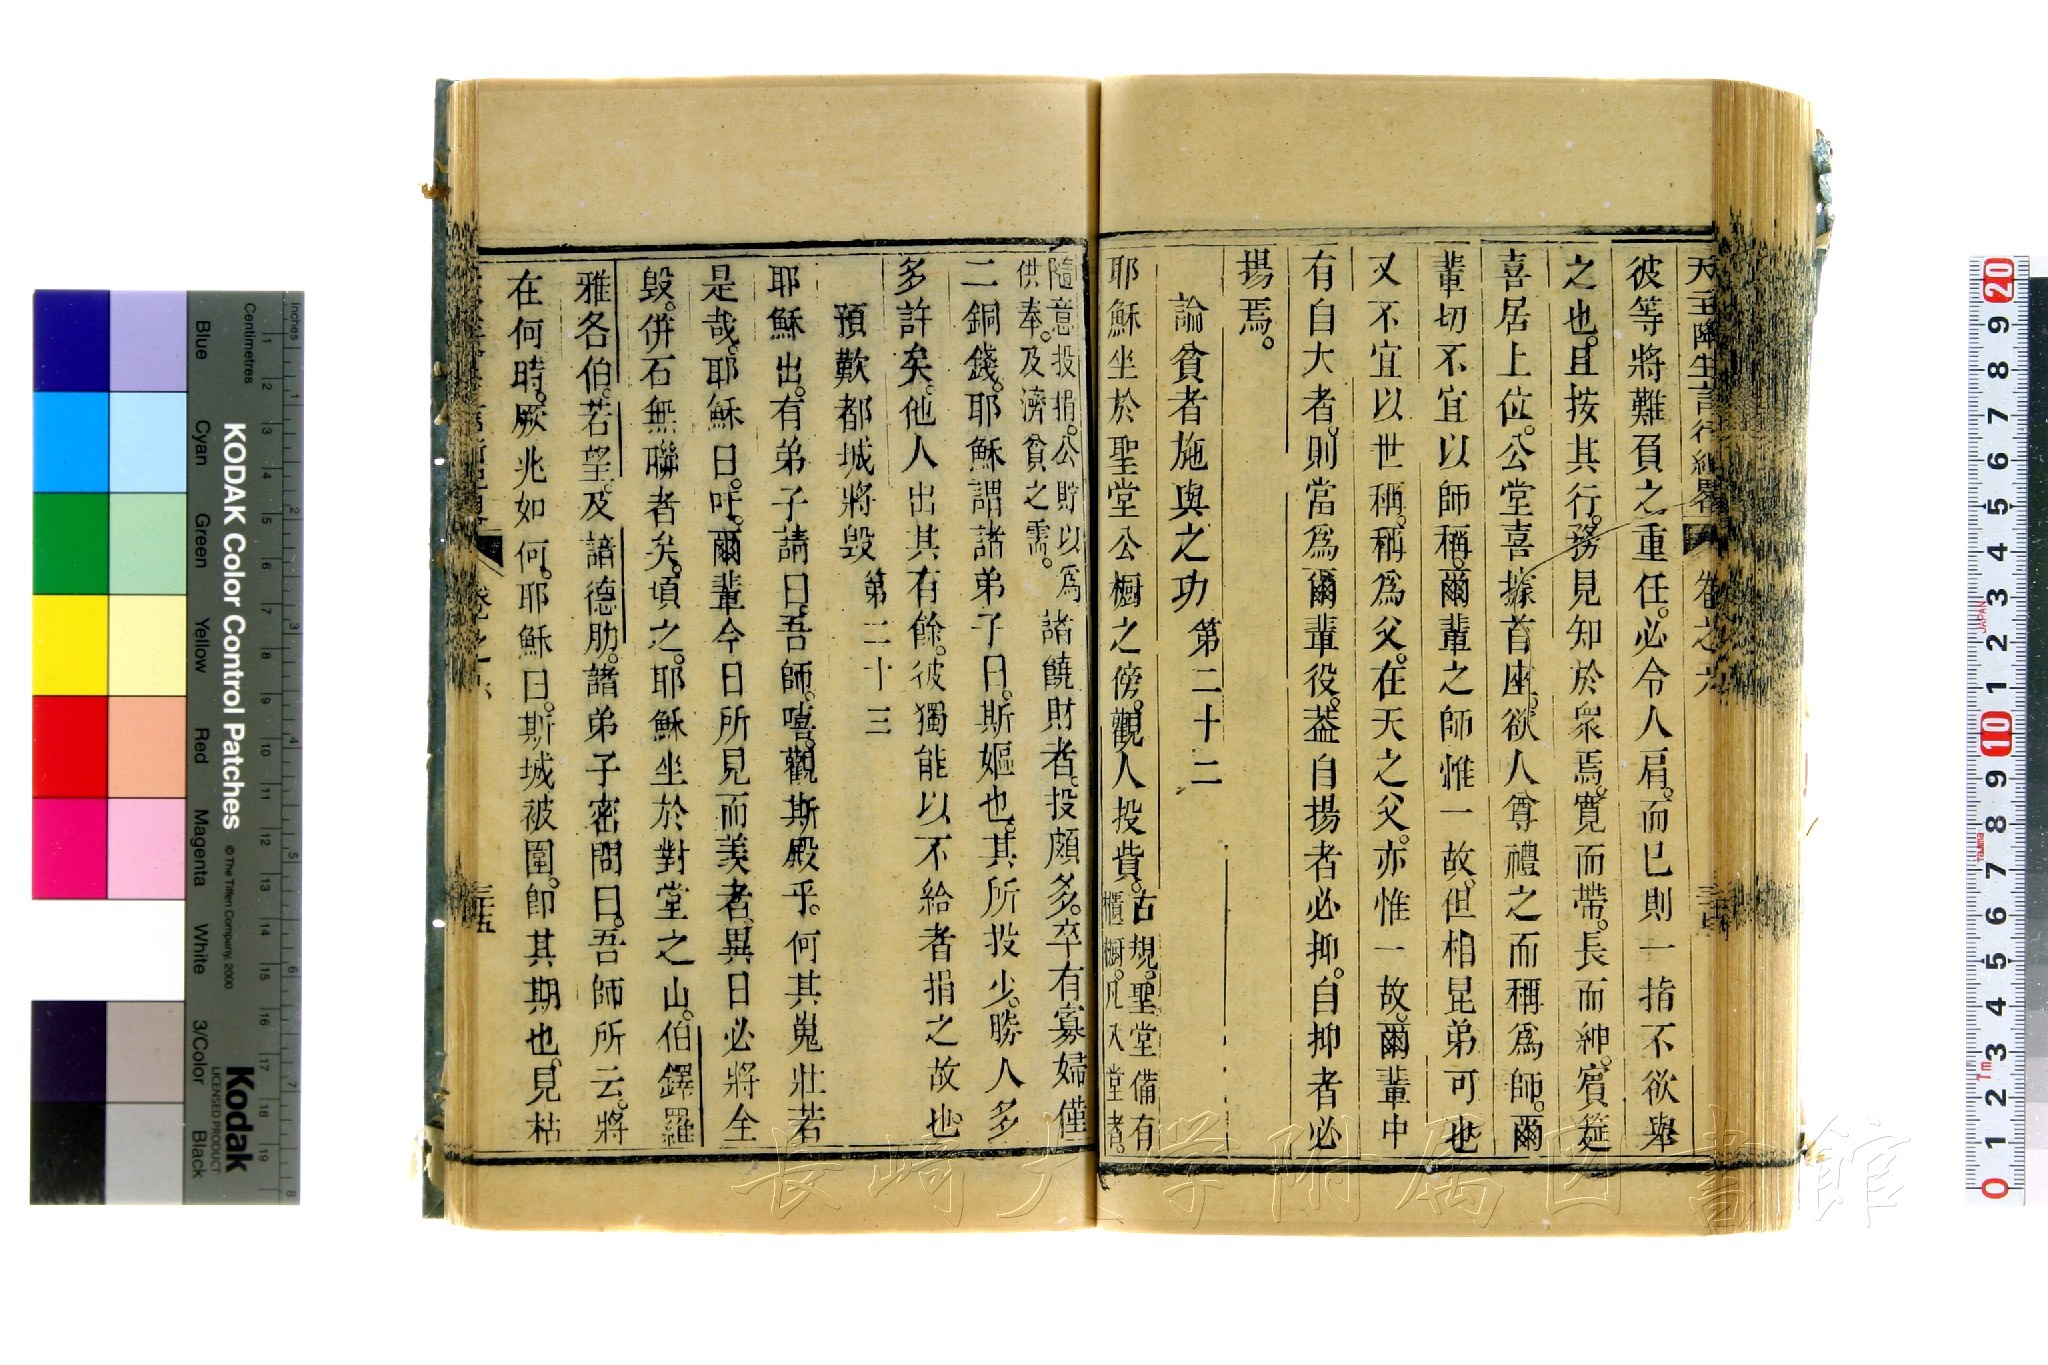 天主降生言行紀畧 卷之六
彼等將難負之重任。必令人肩。而已則一指不欲舉
之也。且按其行。務見知於衆焉。寬而帶。長而紳。賓筵
喜居上位。公堂喜據首座。欲人尊禮之而稱爲師。爾
輩切不宜以師稱。爾輩之師惟一故。但相昆弟可也
又不宜以世稱。稱爲父。在天之父。亦惟一故。爾輩中
有自大者。則當爲爾輩役。葢自揚者必抑。自抑者必
揚焉。
論貧者施與之功 第二十二
耶穌坐於聖堂公橱之傍。觀人投貲。古規。聖堂備有
櫃橱。凡入堂者。
隨意投捐。公貯以爲
供奉。及濟貧之需。
諸饒財者。投頗多。卒有寡婦僅
二銅錢。耶穌謂諸弟子曰。斯嫗也。其所投少。勝人多
多許矣。他人出其有餘。彼獨能以不給者捐之故也。
預歎都城將毁 第二十三
耶穌出。有弟子請曰。吾師。嘻。觀斯殿乎。何其嵬壯若
是哉。耶穌曰。吁。爾輩今日所見而羙者。異日必將全
毁。併石無聯者矣。頃之。耶穌坐於對堂之山。伯鐸羅
雅各伯。若望。及諳德肋。諸弟子密問曰。吾師所云。將
在何時。厥兆如何。耶穌曰。斯城被圍。卽其期也。見枯
卷之六
三十五
Blue
Cyan
Green
Yellow
Red
Magenta
White
3/Color
Black
Inches
Centimetres
KODAK Color Control Patches
© The Tiffen Company, 2000
Kodak
LICENSED PRODUCT
長崎大学附属図書館
JAPAN